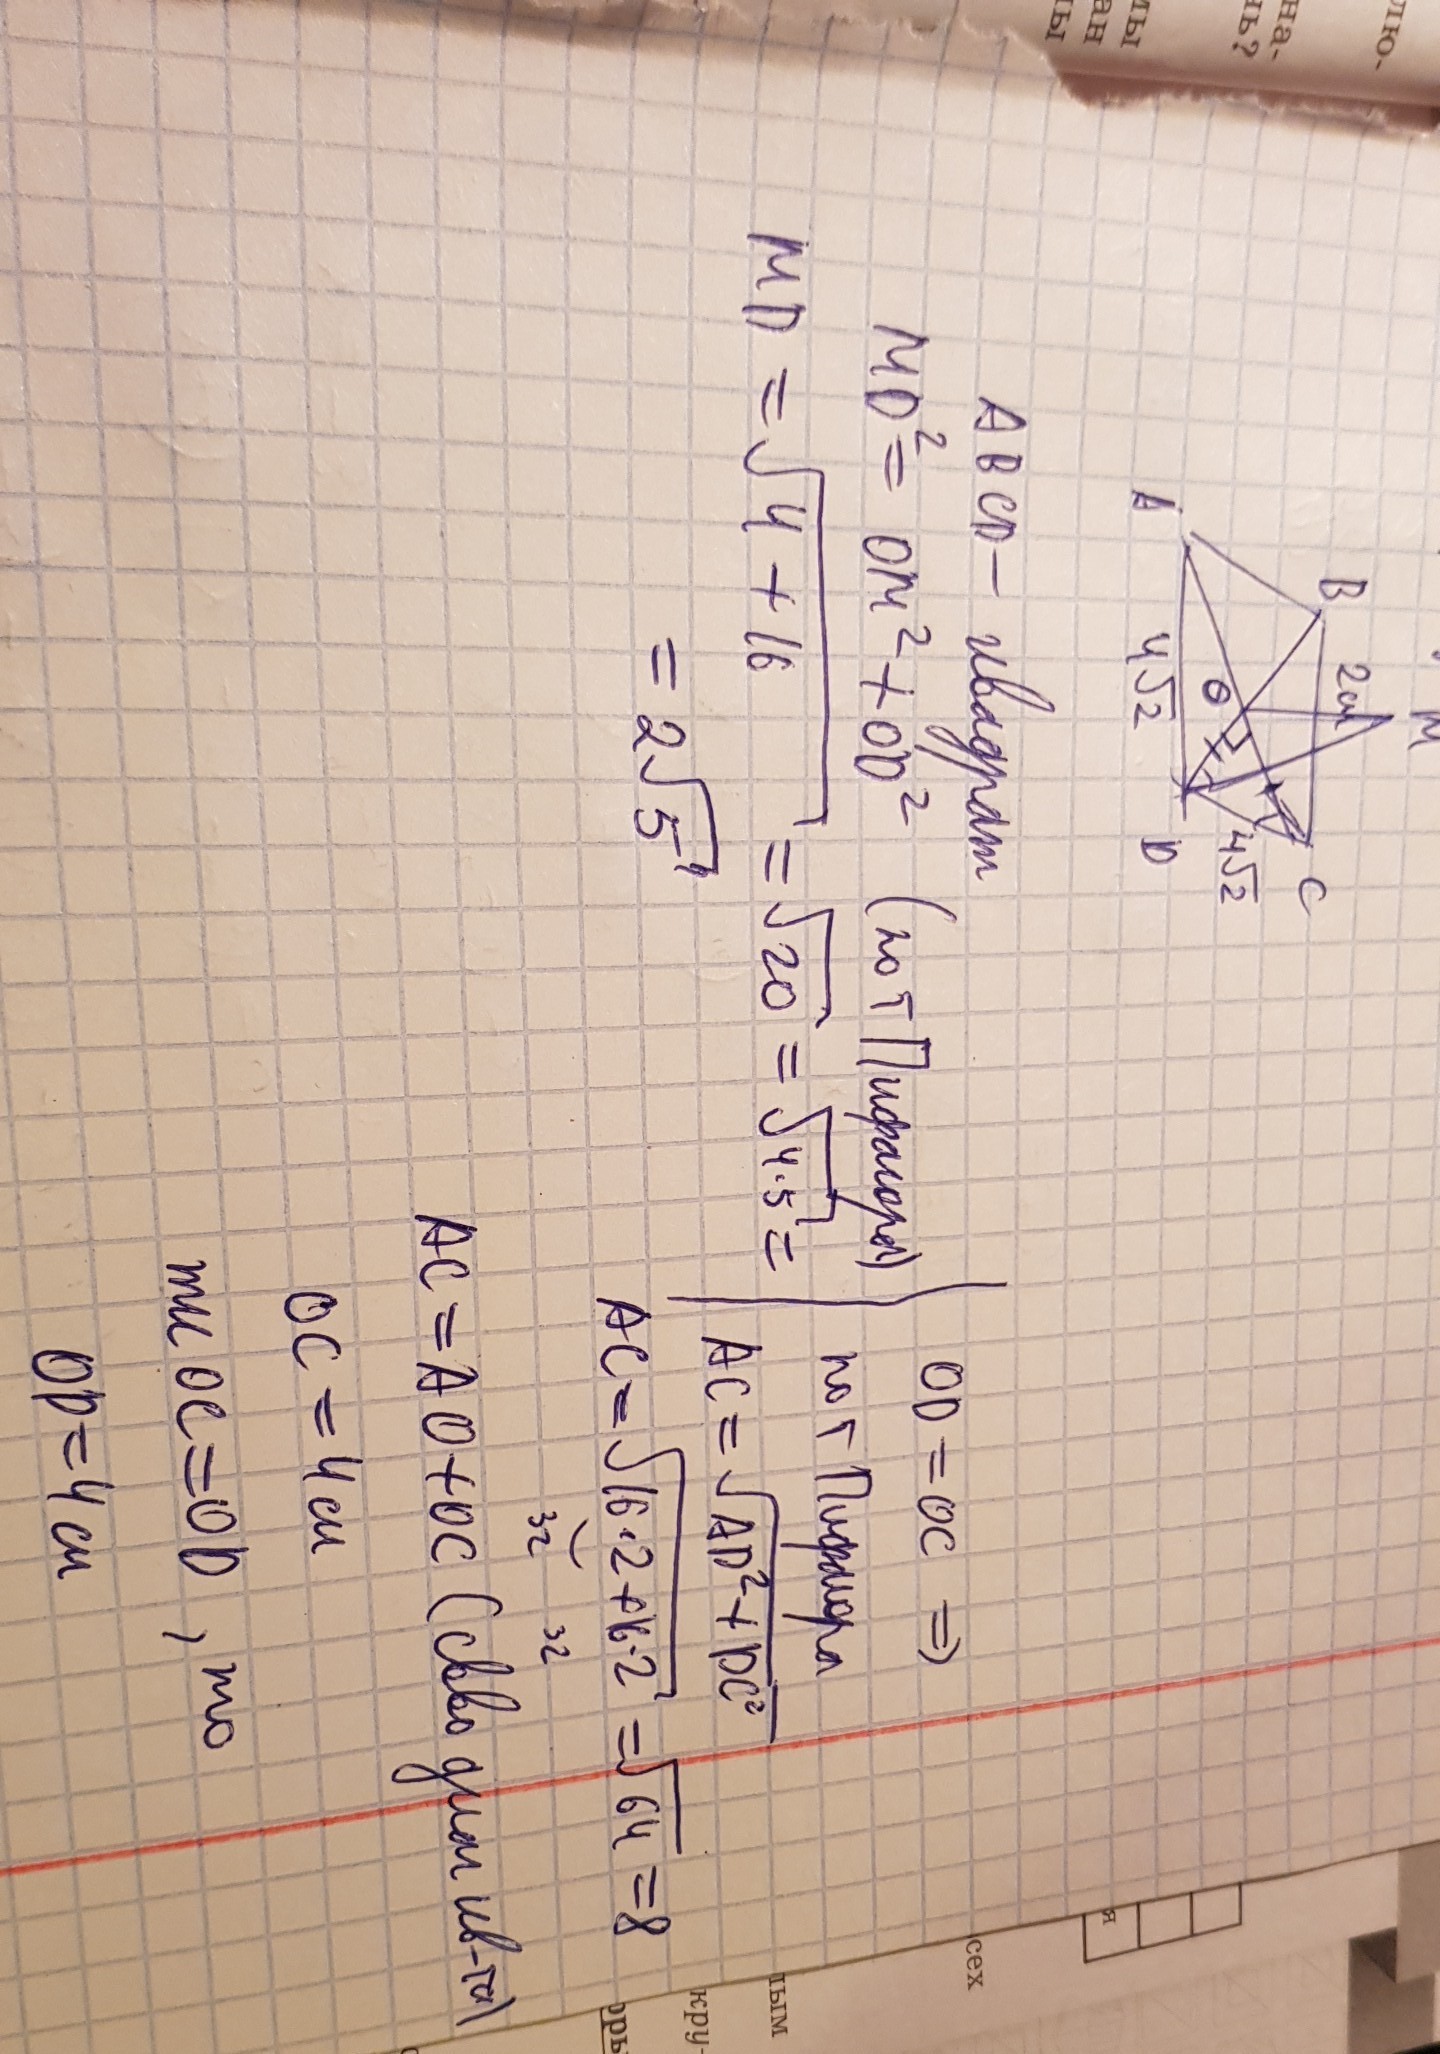 M
B
2см
C
A
O
4√2
4√2
D
ABCD - квадрат
MD² = OM² + OD² (по т Пифагора)
MD = √4 + 16 = √20 = √4·5 =
= 2√5
OD = OC ⇒
по т Пифагора
AC = √AD² + DC²
AC = √16·2 + 16·2 = √64 = 8
32 32
AC = AO + OC (св-во диаг кв-та)
OC = 4 см
тк OC = OD, то
OD = 4 см
лю-
на-
ь?
мы
ан
ы
я
сех
ным
кру-